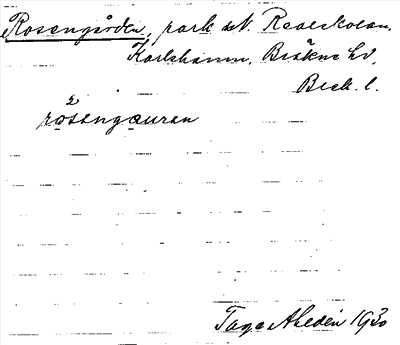 Rosengården, park v. Realskolan,
Karlshamn, Bräkne hd,
Blek. l.
rósengauran
Tage Ahedén 1930